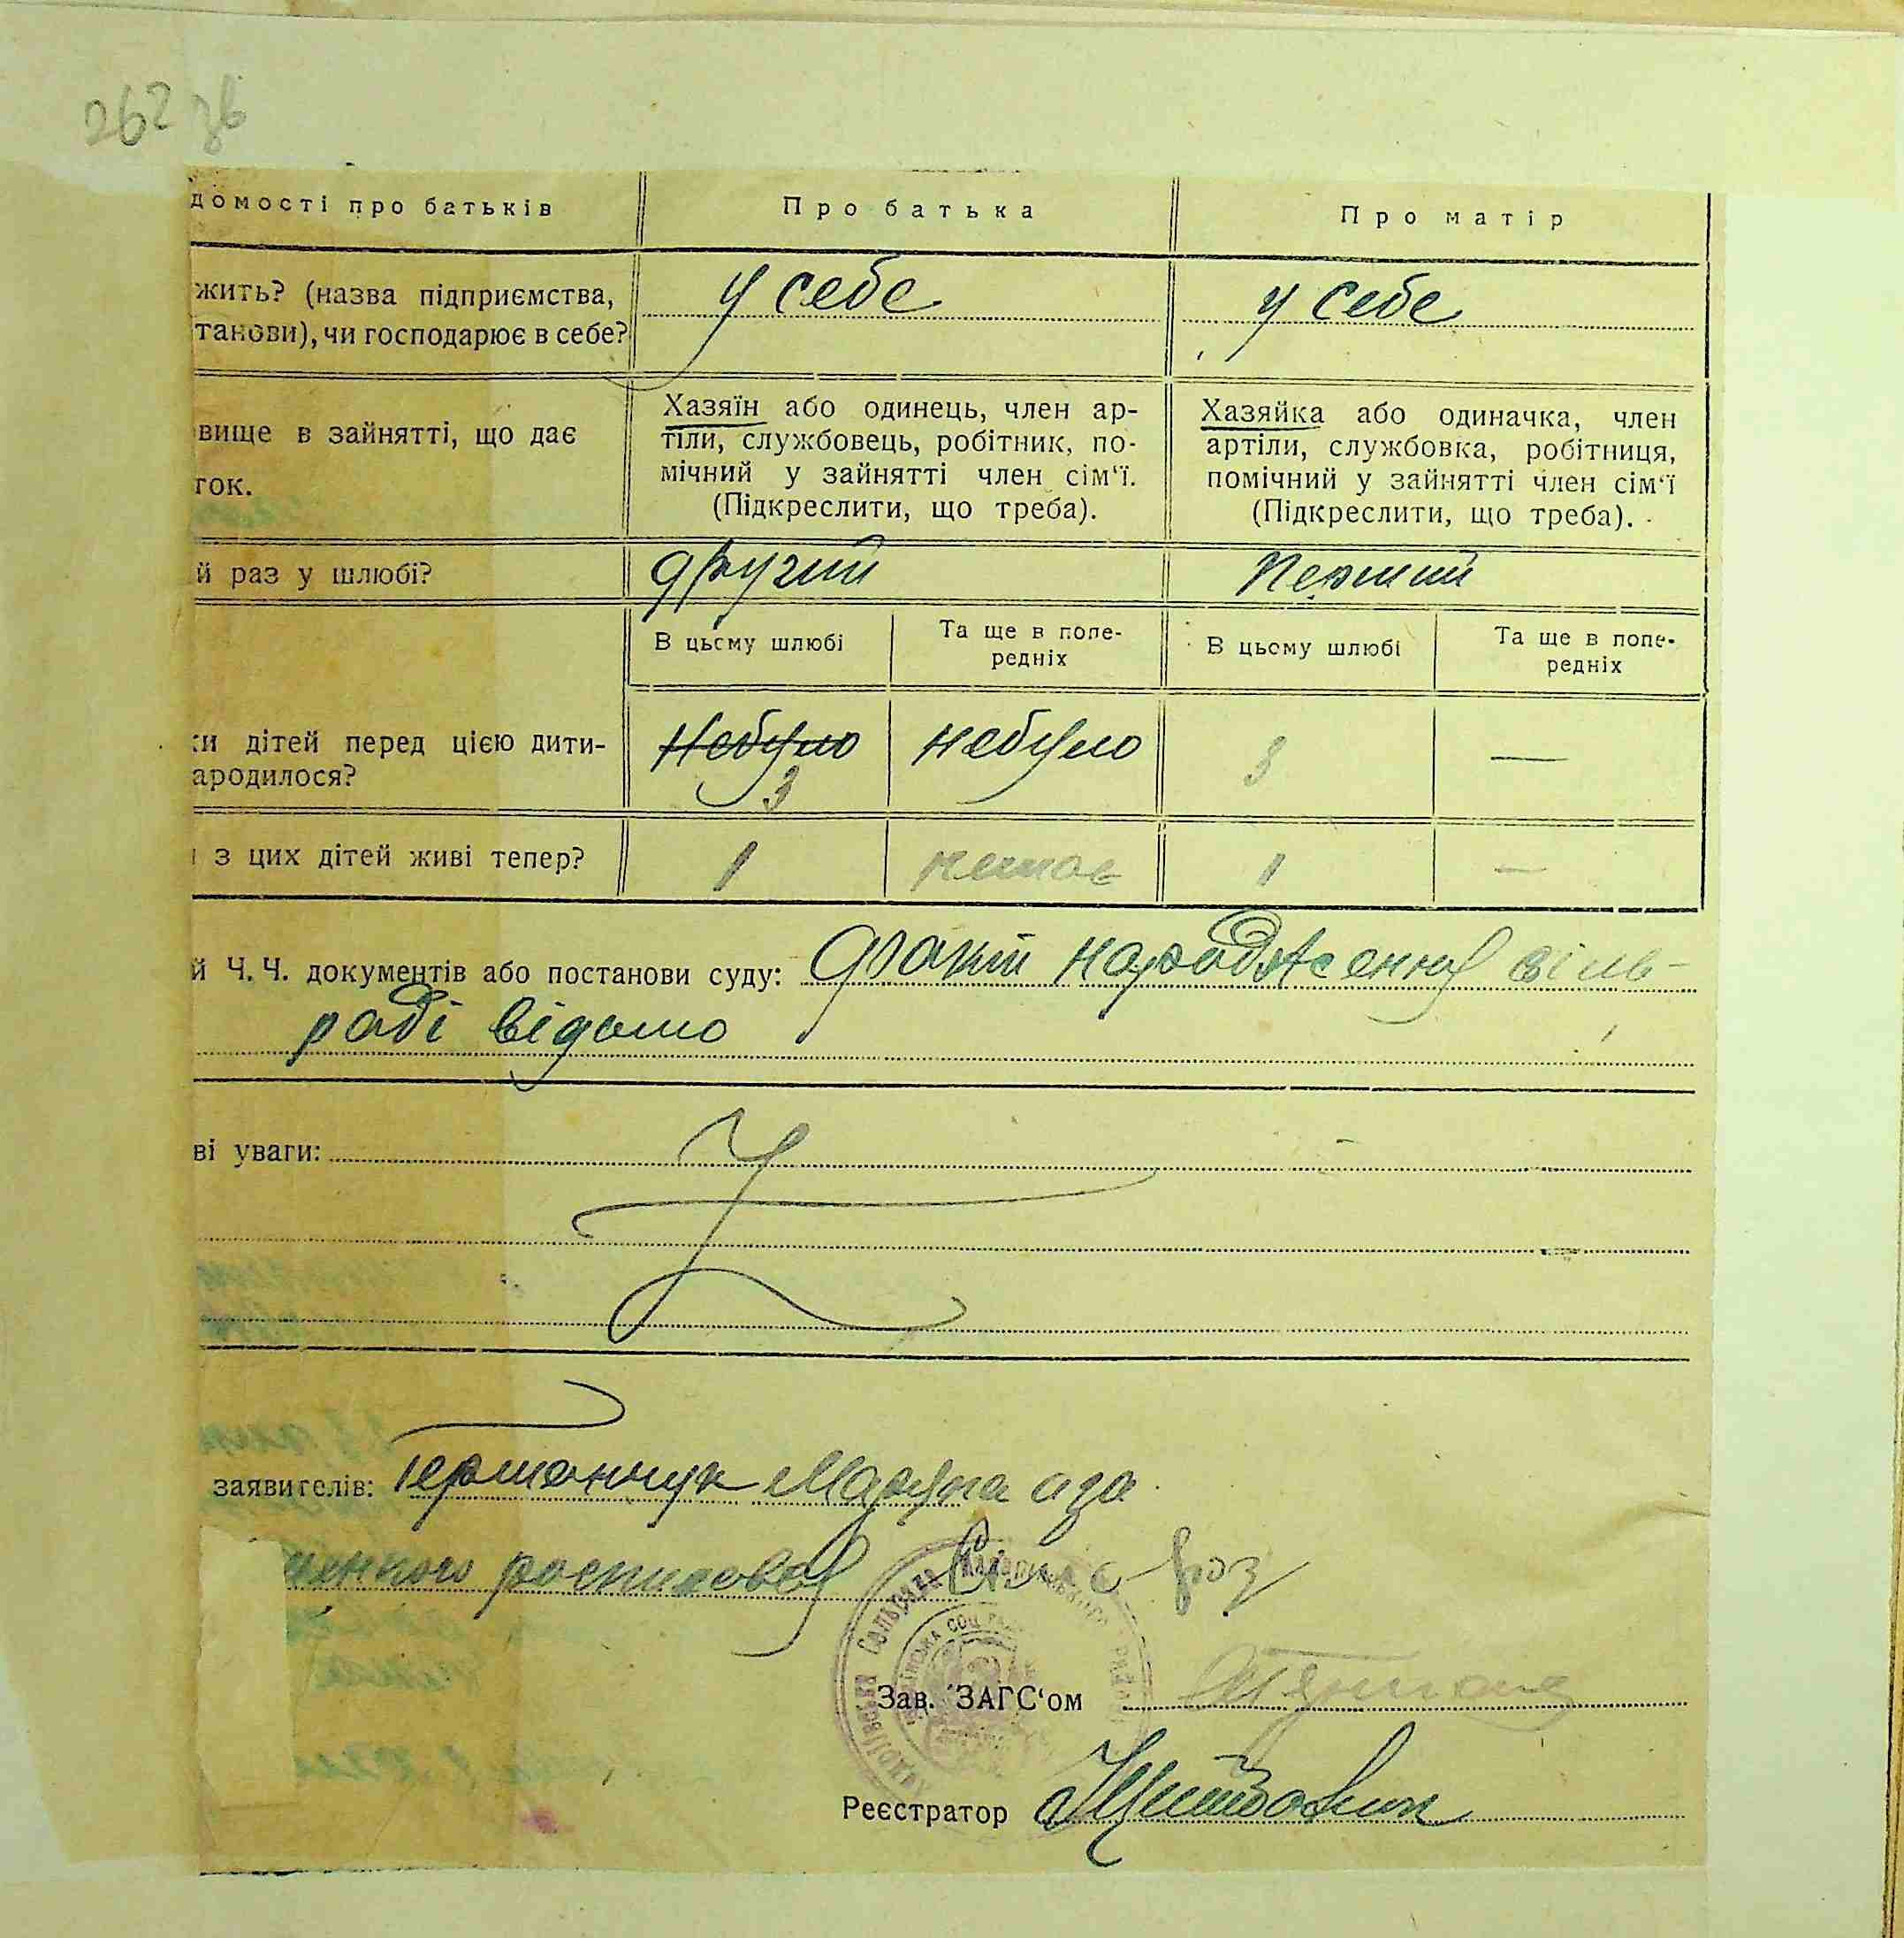 262 зв
домості про батьків
Про батька
Про матір
жить? (назва підприємства,
танови), чи господарює в себе?
у себе
у себе
вище в зайнятті, що дає
ток.
Хазяїн або одинець, член ар-
тіли, службовець, робітник, по-
мічний у зайнятті член сім‘ї.
(Підкреслити, що треба).
Хазяйка або одиначка, член
артіли, службовка, робітниця,
помічний у зайнятті член сім‘ї
(Підкреслити, що треба).
й раз у шлюбі?
другий
перший
В цьому шлюбі
Та ще в попе-
редніх
В цьому шлюбі
Та ще в попе-
редніх
ки дітей перед цією дити-
ародилося?
Небуло
3
небуло
3
—
і з цих дітей живі тепер?
1
немає
1
—
й Ч.Ч. документів або постанови суду: факт народження сіль-
раді відомо
ві уваги:
заявителів: Германчук а за
росписався
Сільрада
Зав. ЗАГС‘ом
Реєстратор